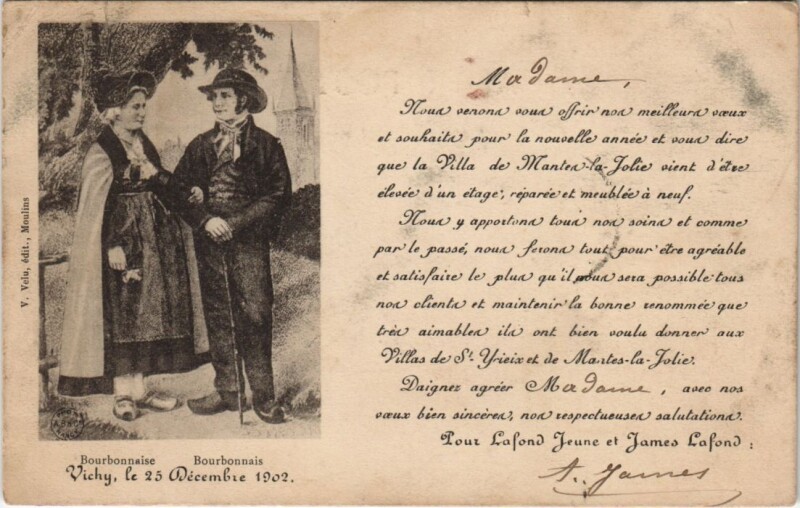 V. Velu, édit., Moulins
Bourbonnaise Bourbonnais
Vichy, le 25 Décembre 1902.
Madame,
Nous venons vous offrir nos meilleurs vœux
et souhaits pour la nouvelle année et vous dire
que la Villa de Mantes-la-Jolie vient d'être
élevée d'un étage, réparée et meublée à neuf.
Nous y apportons tous nos soins et comme
par le passé, nous ferons tout pour être agréable
et satisfaire le plus qu'il nous sera possible tous
nos clients et maintenir la bonne renommée que
très aimables ils ont bien voulu donner aux
Villas de St-Yrieix et de Mantes-la-Jolie.
Daignez agréer Madame, avec nos
vœux bien sincères, nos respectueuses salutations.
Pour Lafond Jeune et James Lafond :
A. James